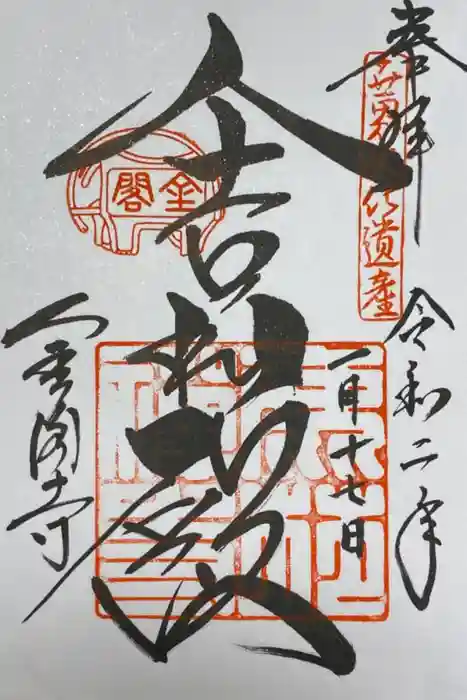 奉拝
世界文化遺産
令和二年
一月十七日
金閣
舎利殿
金閣寺